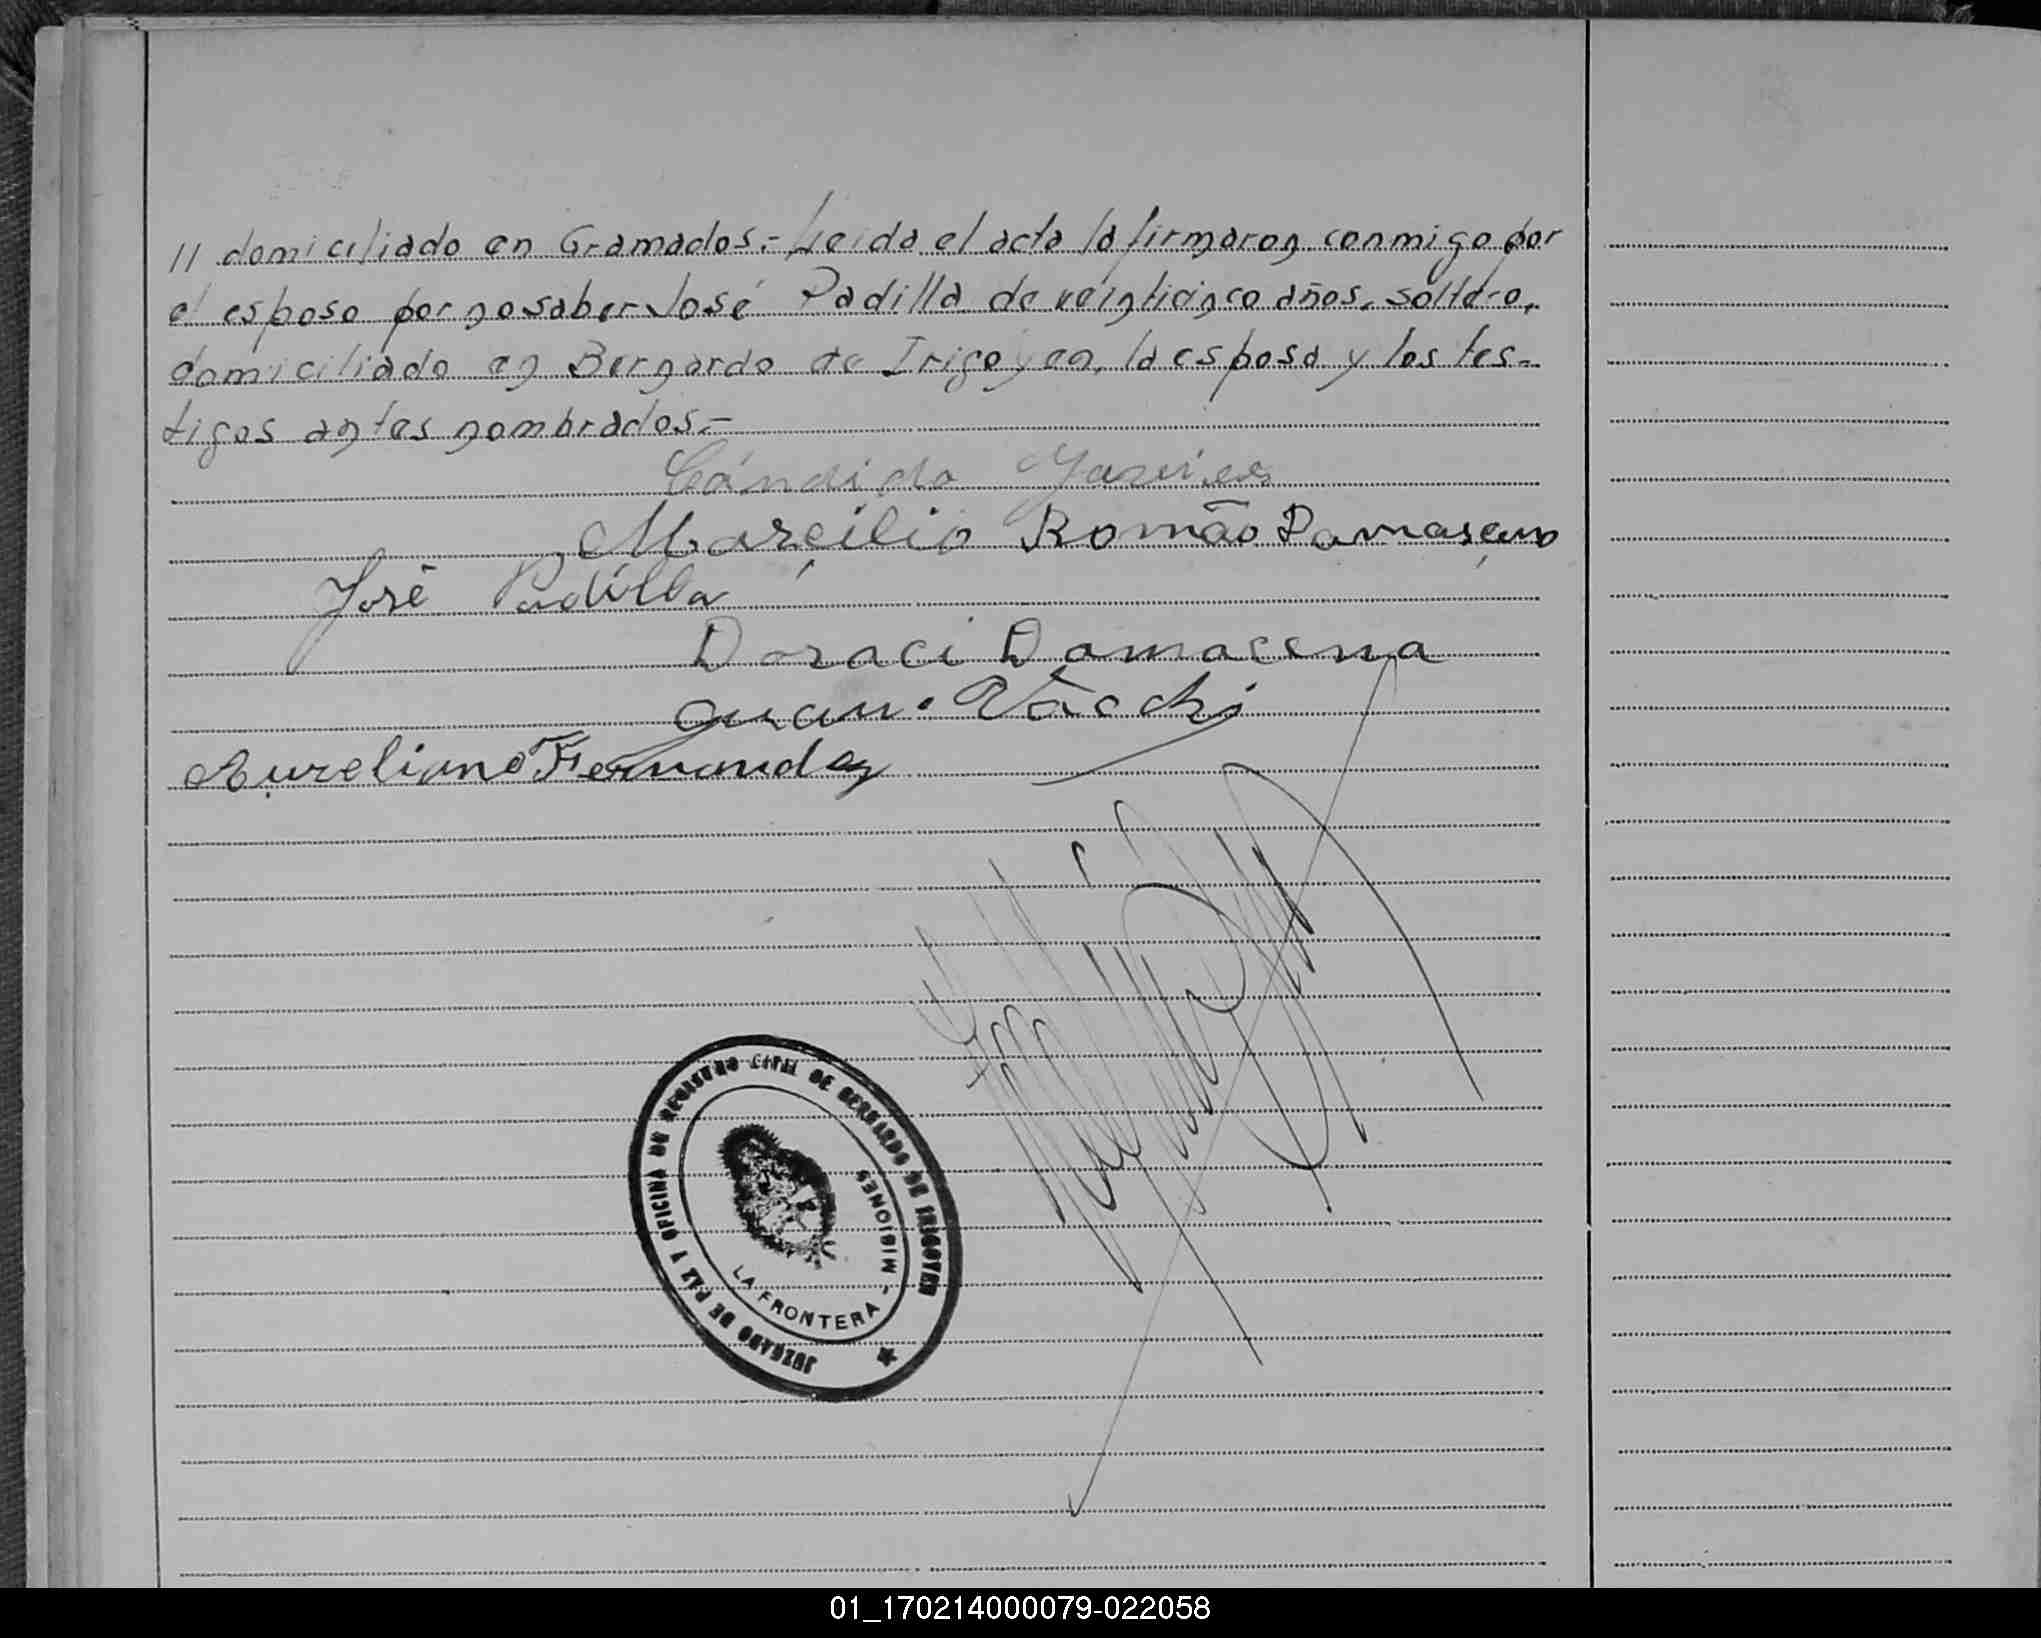 // domiciliado en Gramados.- Leída el acta la firmaron conmigo por
el esposo por no saber José Padilla de veinticinco años, soltero,
domiciliado en Bernardo de Irigoyen, la esposa y los tes-
tigos antes nombrados.-
Cándido
Marcilio Romão Damasceno
José Padilla
Doraci Damacena
Juan Vacchi
Aureliano Fernandez
JUZGADO DE PAZ Y OFICINA DE REGISTRO CIVIL DE BERNARDO DE IRIGOYEN
LA FRONTERA - MISIONES
01_170214000079-022058